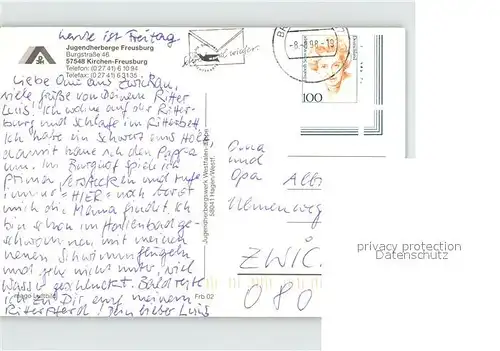 heute ist Freitag
Jugendherberge Freusburg
Burgstraße 46
57548 Kirchen-Freusburg
Telefon: (0 27 41) 6 10 94
Telefax: (0 27 41) 6 31 35
Liebe Omi aus Zwickau,
viele grüße von Deinem Ritter
Luis. Ich wohne auf der Ritter-
burg und schlafe im Ritterbett
Ich habe ein Schwert aus Holz
damit haue ich den Papa
um. Im Burghof spiele ich
prima verstecken und rufe
immer "HIER" noch bevor
mich die Mama findet. Ich
bin schon im Hallenbad ge-
schwommen mit meinen
neuen Schwimmflügeln
und gehe nicht unter, viel
Wasser geschluckt. Bald reite
ich zu Dir auf meinem
Ritterpferd! Dein lieber Luis
Frb 02
Jugendherbergswerk Westfalen-Lippe
58041 Hagen/Westf.
-8.-9.98.-19
100
Oma
und
Opa
ZWIC
080
privacy protection
Datenschutz